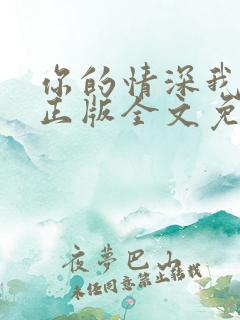 你的情深我
正版全文免
夜梦巴山
未经同意禁止转载